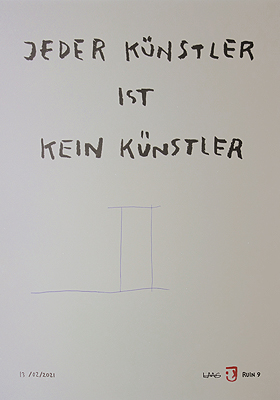 JEDER KÜNSTLER
IST
KEIN KÜNSTLER
13/02/2021
RUIN 9